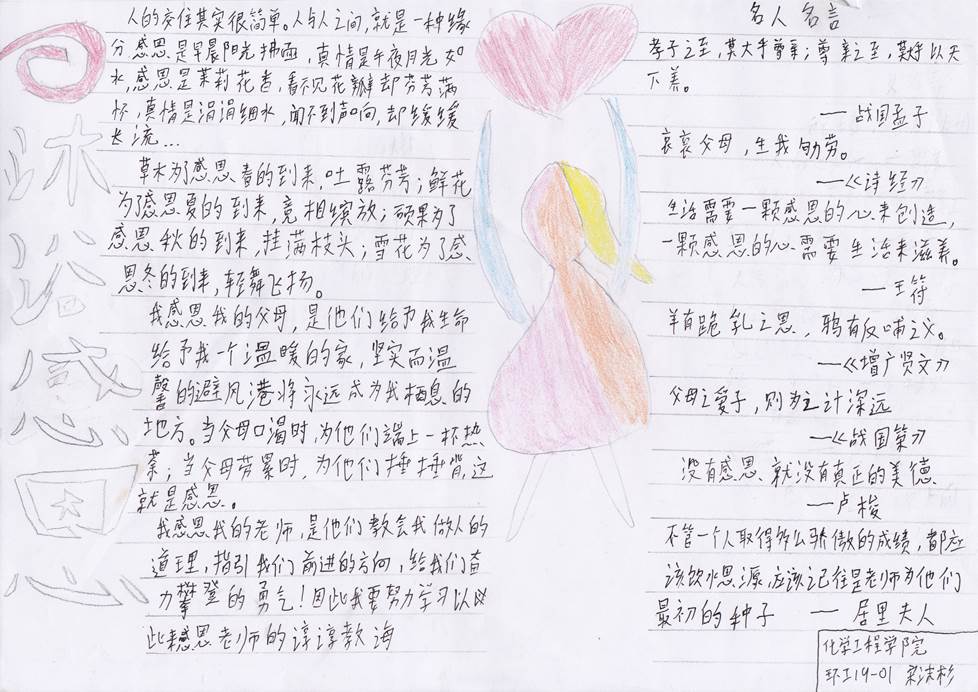 谈谈感恩
人的交往其实很简单。人与人之间,就是一种缘
分感恩是早晨阳光拂面,真情是午夜月光如
水,感恩是茉莉花香,看不见花瓣却芬芳满
怀,真情是涓涓细水,闻不到声响,却缓缓
长流...
草木为了感恩春的到来,吐露芬芳;鲜花
为了感恩夏的到来,竞相缤放;硕果为了
感恩秋的到来,挂满枝头;雪花为了感
恩冬的到来,轻舞飞扬。
我感恩我的父母,是他们给予我生命
给予我一个温暖的家,坚实而温
馨的避风港将永远成为我栖息的
地方。当父母口渴时,为他们端上一杯热
茶;当父母劳累时,为他们捶捶背,这
就是感恩。
我感恩我的老师,是他们教会我做人的
道理,指引我们前进的方向,给我们奋
力攀登的勇气!因此我要努力学习以
此来感恩老师的谆谆教诲
名人名言
孝子之至,莫大乎尊亲;尊亲之至,莫乎以天
下养。
——战国孟子
哀哀父母,生我劬劳。
——《诗经》
生活需要一颗感恩的心来创造,
一颗感恩的心需要生活来滋养。
——王符
羊有跪乳之恩,鸦有反哺之义。
——《增广贤文》
父母之爱子,则为之计深远
——《战国策》
没有感恩就没有真正的美德
——卢梭
不管一个人取得多么骄傲的成绩,都应
该饮水思源,应该记住是老师为他们
最初的种子 —— 居里夫人
化学工程学院
环工19-01 梁洁杉